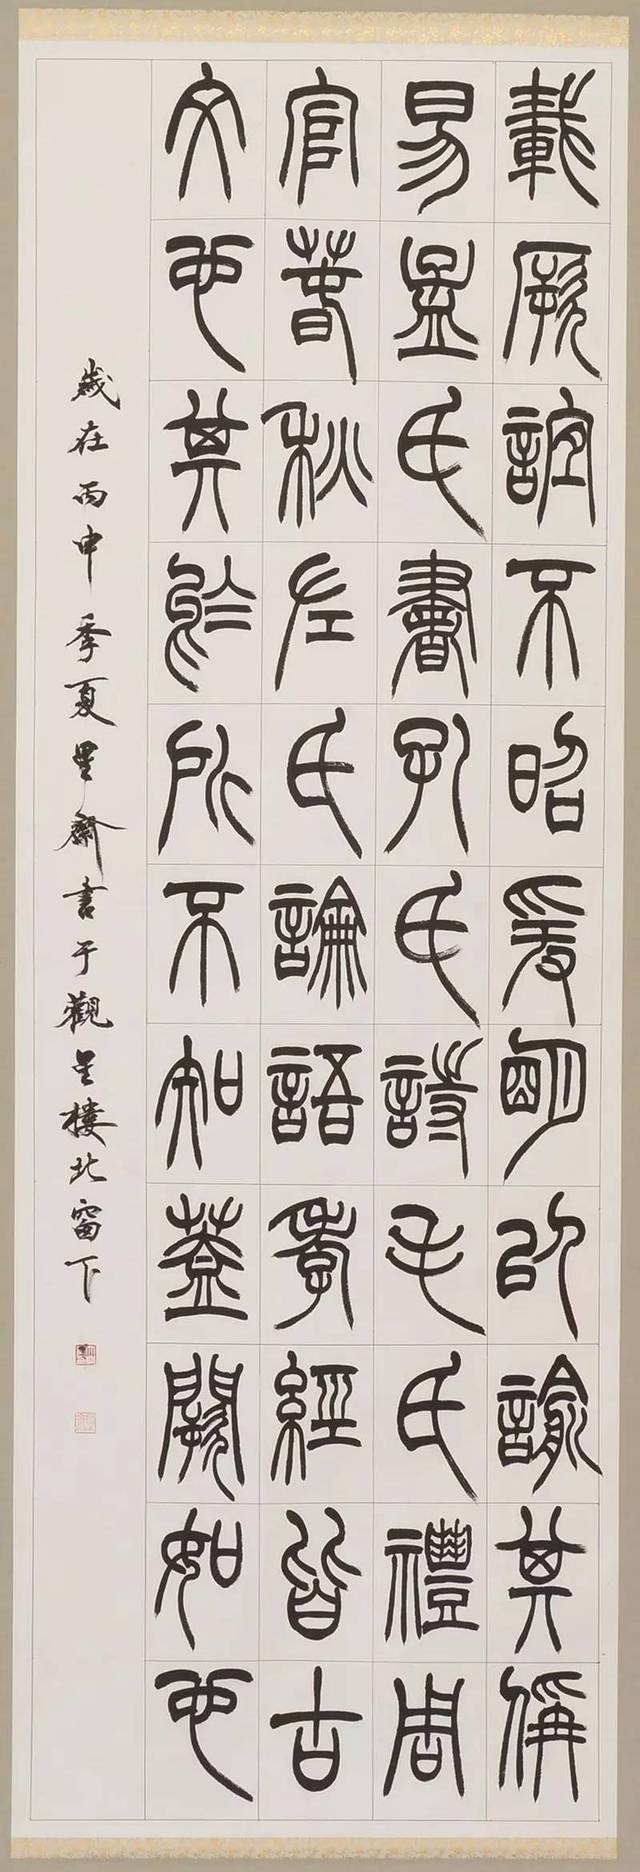 載厥誼不昭爰朙以諭其偁
易孟氏書孔氏詩毛氏禮周
官春秋左氏論語孝經皆古
文也其於所不知蓋闕如也
歲在丙申季夏星齋書于觀星樓北窗下